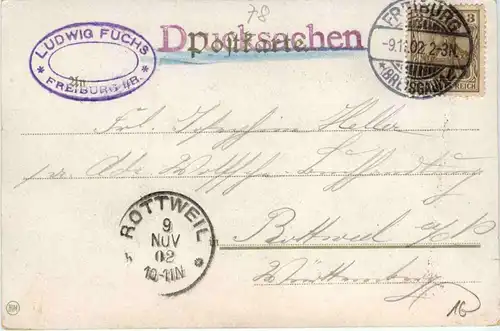 78
LUDWIG FUCHS
An
* FREIBURG I/B. *
Drucksachen
Postkarte
FREIBURG
-9.11.02 2-3N.
*(BREISGAU)
3
REICH
Frl. Josephine Heller
pr. Adr.
Rottweil a/N
Württemberg
ROTTWEIL
9
NOV
02
10-11N
16